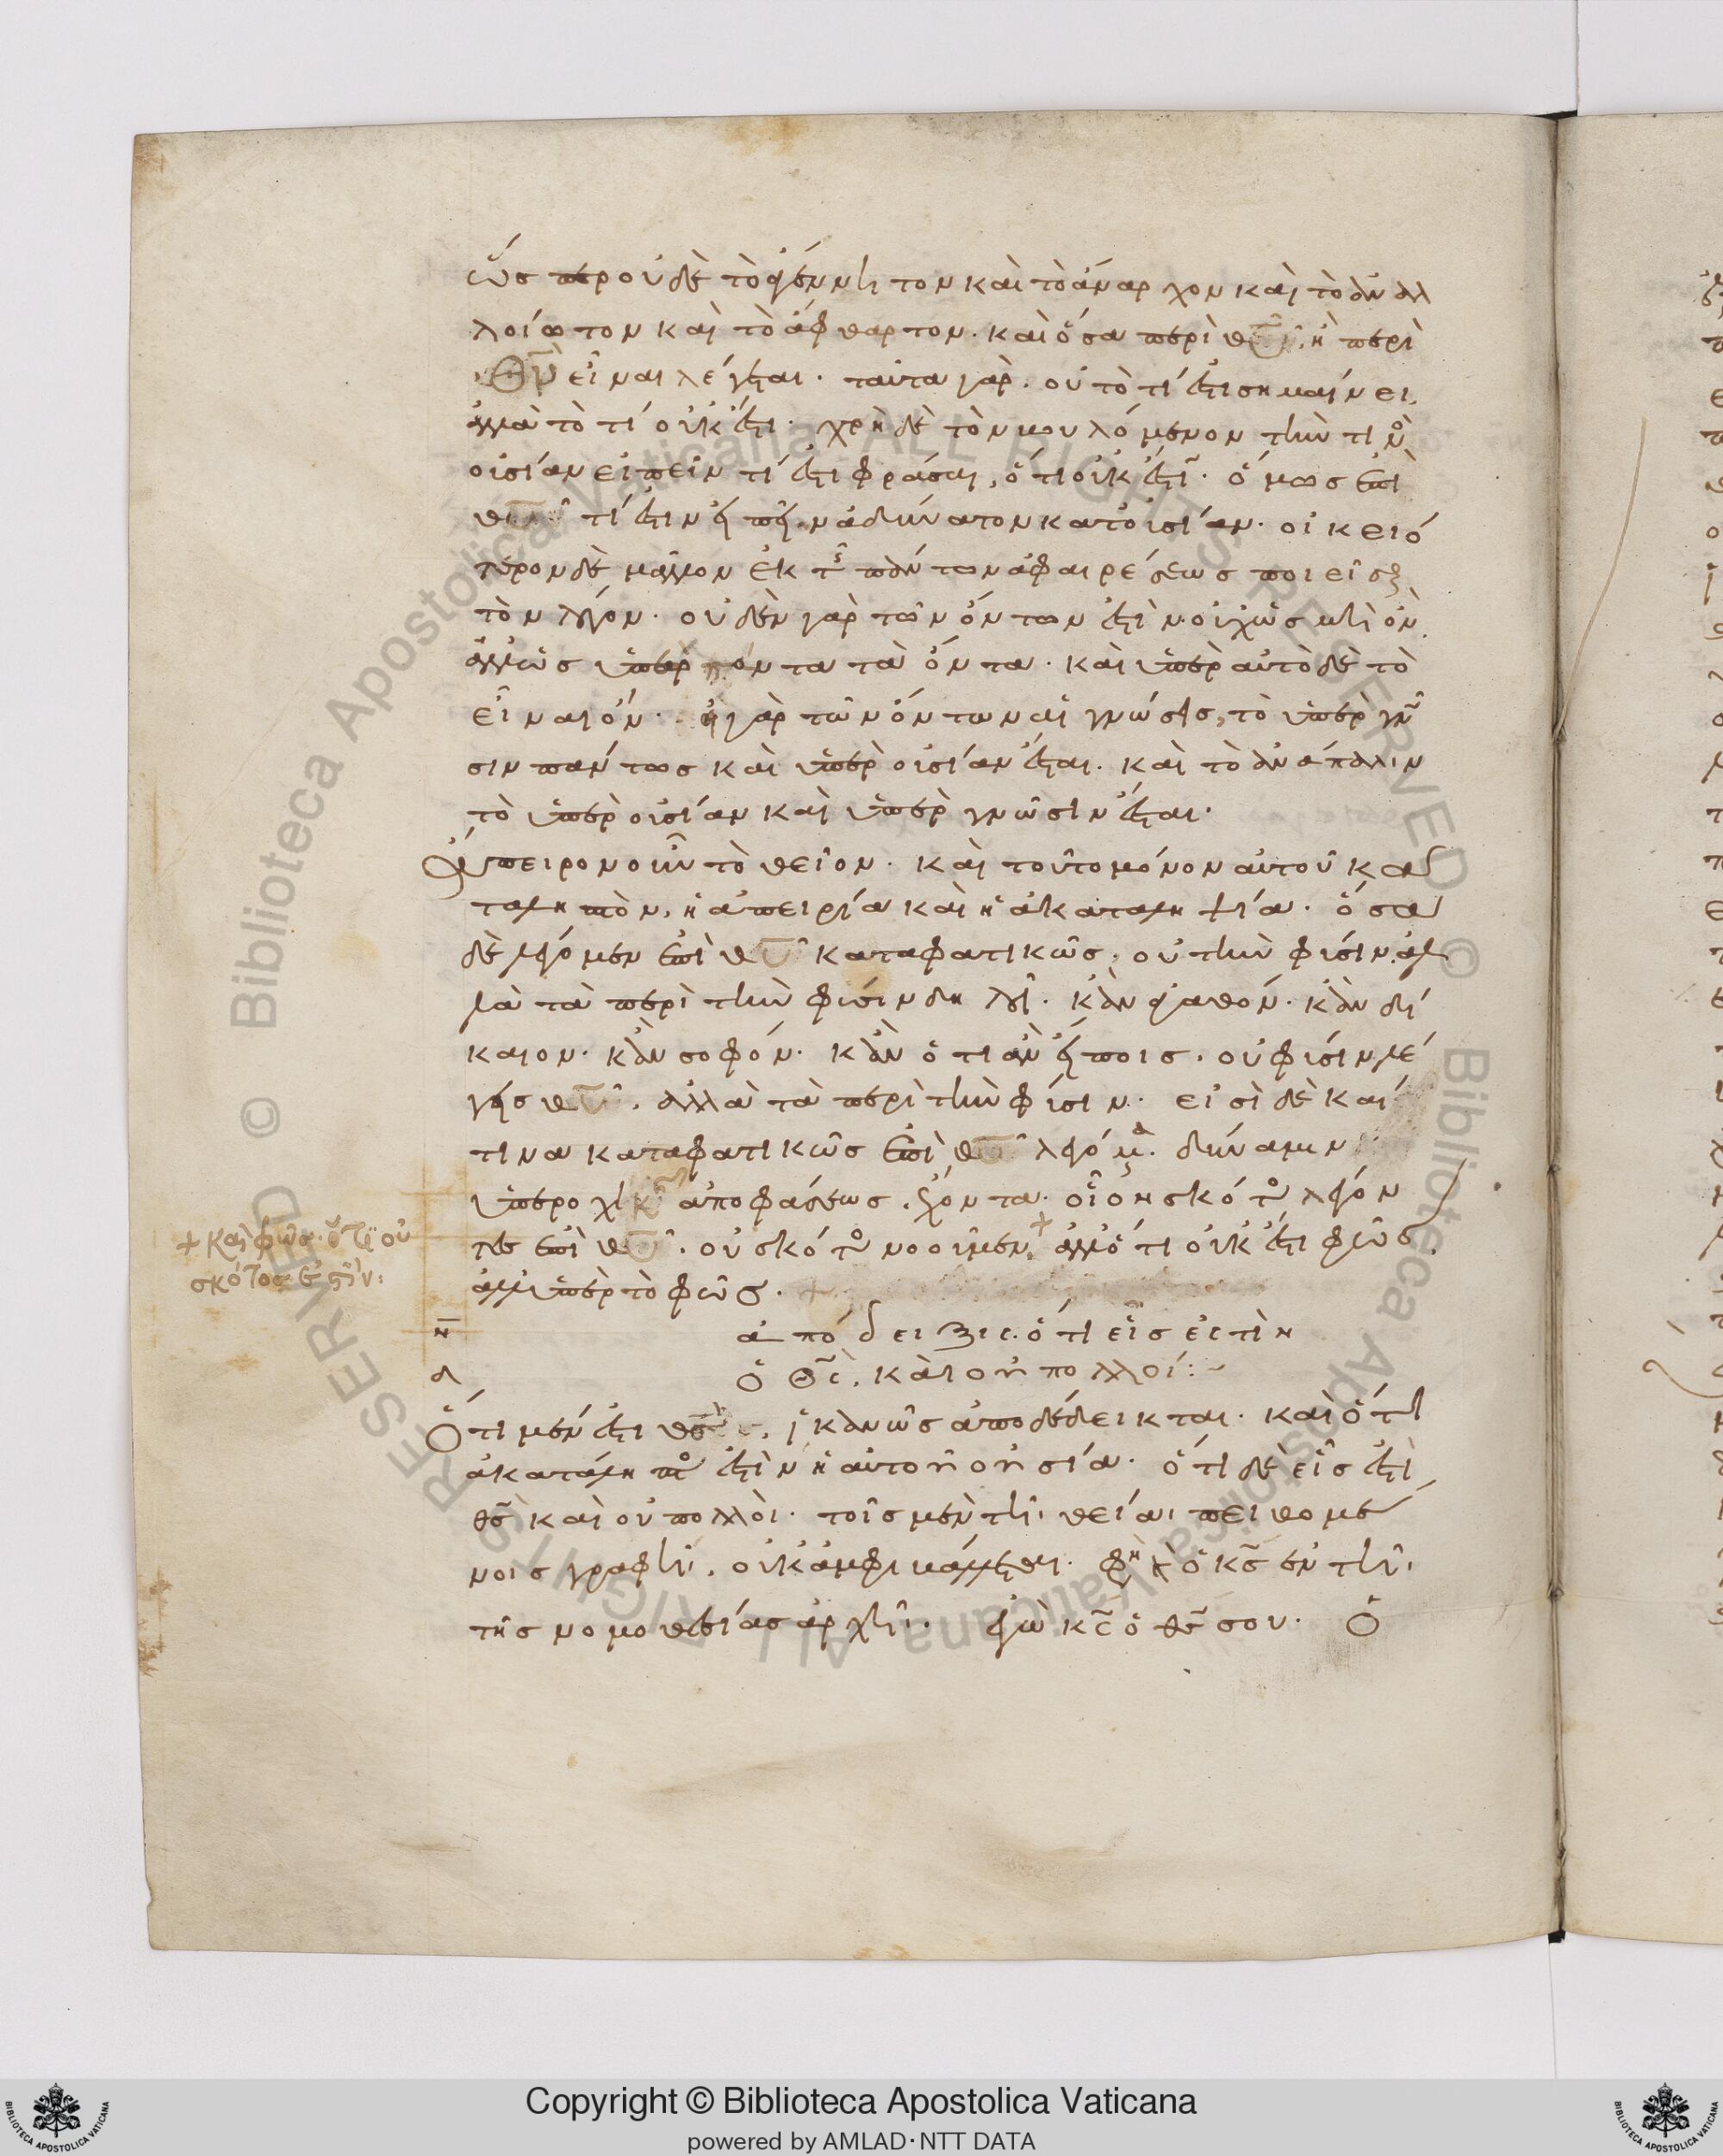 ὥσπερ οὐδὲ τὸ ἀγέννητον καὶ τὸ ἄναρχον καὶ τὸ ἀναλ
λοίωτον καὶ τὸ ἄφθαρτον. καὶ ὅσα περὶ θῦ, ἢ περὶ
Θν εἶναι λέγεται. ταῦτα γὰρ. οὐ τὸ τί ἐστι σημαίνει,
ἀλλὰ τὸ τί οὐκ ἔστι. χρὴ δὲ τὸν βουλόμενον τὴν τινὸς
οὐσίαν εἰπεῖν τί ἐστι φράσαι, ὅ τι οὐκ ἔστι. ὅμως ἐπὶ
θῦ τί ἐστιν εἰπεῖν ἀδύνατον κατ' οὐσίαν. οἰκειό
τερον δὲ μᾶλλον ἐκ τῆς πάντων ἀφαιρέσεως ποιεῖσθαι
τὸν λόγον. οὐδὲν γὰρ τῶν ὄντων ἐστὶν. οὐχ ὡς μὴ ὂν.
ἀλλ' ὡς ὑπὲρ πάντα τὰ ὄντα. καὶ ὑπὲρ αὐτὸ δὲ τὸ
εἶναι ὄν. εἰ γὰρ τῶν ὄντων αἱ γνώσεις, τὸ ὑπὲρ γνῶ
σιν πάντως καὶ ὑπὲρ οὐσίαν ἔσται. καὶ τὸ ἀνάπαλιν
τὸ ὑπὲρ οὐσίαν καὶ ὑπὲρ γνῶσιν ἔσται.
Ἄπειρον οὖν τὸ θεῖον. καὶ τοῦτο μόνον αὐτοῦ κα
ταληπτὸν, ἡ ἀπειρία καὶ ἡ ἀκαταληψία. ὅσα
δὲ λέγομεν ἐπὶ θῦ καταφατικῶς, οὐ τὴν φύσιν ἀλ
λὰ τὰ περὶ τὴν φύσιν δηλοῖ. κἂν ἀγαθόν. κἂν δί
καιον. κἂν σοφόν. κἂν ὅ τι ἂν εἴποις. οὐ φύσιν λέ
γεις θῦ. ἀλλὰ τὰ περὶ τὴν φύσιν. εἰσὶ δὲ καί
τινα καταφατικῶς ἐπὶ θῦ λεγόμενα. δύναμιν
ὑπεροχικῆς ἀποφάσεως ἔχοντα. οἷον σκότος λέγον
τες ἐπὶ θῦ. οὐ σκότος νοοῦμεν, + ἀλλ' ὅτι οὐκ ἔστι φῶς,
ἀλλ' ὑπὲρ τὸ φῶς.
+ καὶ φῶς. ὅτι οὐ
σκότος ἐστίν:
η ἀπόδειξις ὅτι εἷς ἐστὶν
δ ὁ Θς, καὶ οὐ πολλοί:
Ὅτι μὲν ἔστι θς, ἱκανῶς ἀποδέδεικται. καὶ ὅτι
ἀκατάληπτός ἐστιν ἡ αὐτοῦ οὐσία. ὅτι δὲ εἷς ἐστὶ
θς καὶ οὐ πολλοὶ. τοῖς μὲν τῇ θείαι πειθομέ
νοις γραφῆι, οὐκ ἀμφιβάλλεται. φησὶ γὰρ ὁ κς ἐν τῆι
τῆς νομοθεσίας ἀρχῆι. ἐγὼ κς ὁ θς σου. Ὁ